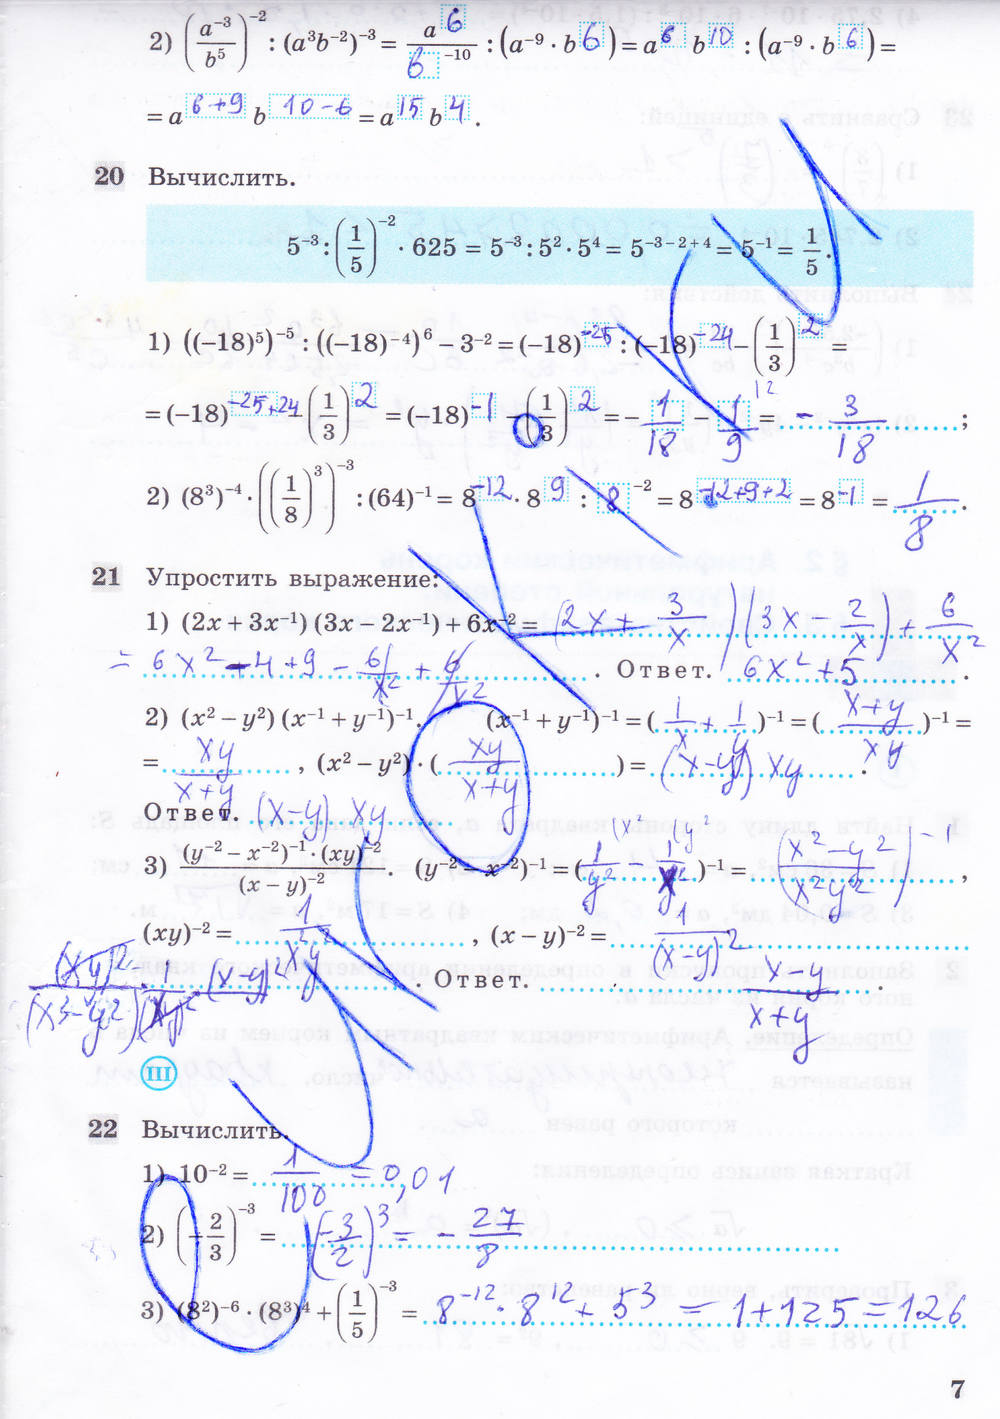 2) (a⁻³/b⁵)⁻² : (a³b⁻²)⁻³ = a⁶/b⁻¹⁰ : (a⁻⁹ · b⁶) = a⁶ b¹⁰ : (a⁻⁹ · b⁶) =
= a⁶⁺⁹ b¹⁰⁻⁶ = a¹⁵ b⁴.
20 Вычислить.
5⁻³ : (1/5)⁻² · 625 = 5⁻³ : 5² · 5⁴ = 5⁻³⁻²⁺⁴ = 5⁻¹ = 1/5.
1) ((−18)⁵)⁻⁵ : ((−18)⁻⁴)⁶ − 3⁻² = (−18)⁻²⁵ : (−18)⁻²⁴ − (1/3)² =
= (−18)⁻²⁵⁺²⁴ − (1/3)² = (−18)⁻¹ − (1/3)² = − 1/18 − 1/9 = − 3/18 ;
2) (8³)⁻⁴ · ((1/8)³)⁻³ : (64)⁻¹ = 8⁻¹² · 8⁹ : 8⁻² = 8⁻¹²⁺⁹⁺² = 8⁻¹ = 1/8.
21 Упростить выражение:
1) (2x + 3x⁻¹) (3x − 2x⁻¹) + 6x⁻² = (2x + 3/x)(3x − 2/x) + 6/x²
= 6x² − 4 + 9 − 6/x² + 6/x² . Ответ. 6x² + 5 .
2) (x² − y²) (x⁻¹ + y⁻¹)⁻¹. (x⁻¹ + y⁻¹)⁻¹ = (1/x + 1/y)⁻¹ = (x+y/xy)⁻¹ =
= xy/x+y , (x² − y²) · (xy/x+y) = (x−y) xy .
Ответ. (x−y) xy
3) (y⁻² − x⁻²)⁻¹ · (xy)⁻²/(x − y)⁻². (y⁻² − x⁻²)⁻¹ = (1/y² − 1/x²)⁻¹ = (x²−y²/x²y²)⁻¹ ,
(xy)⁻² = 1/x²y² , (x − y)⁻² = 1/(x−y)²
. Ответ. x−y/x+y .
III
22 Вычислить.
1) 10⁻² = 1/100 = 0,01
2) (−2/3)⁻³ = (−3/2)³ = − 27/8
3) (8²)⁻⁶ · (8³)⁴ + (1/5)⁻³ = 8⁻¹² · 8¹² + 5³ = 1+125 = 126
7